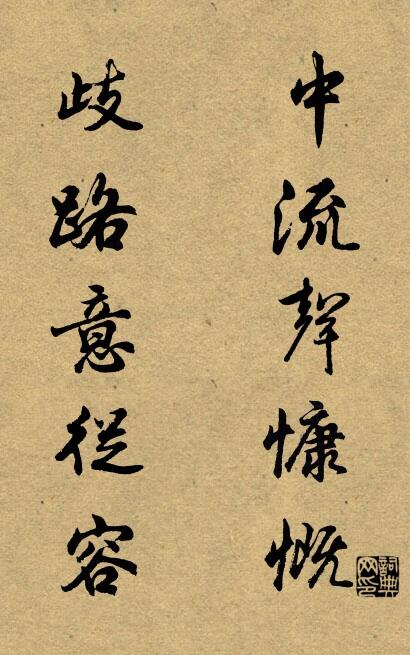 中流聲慷慨
歧路意從容
詞典网印